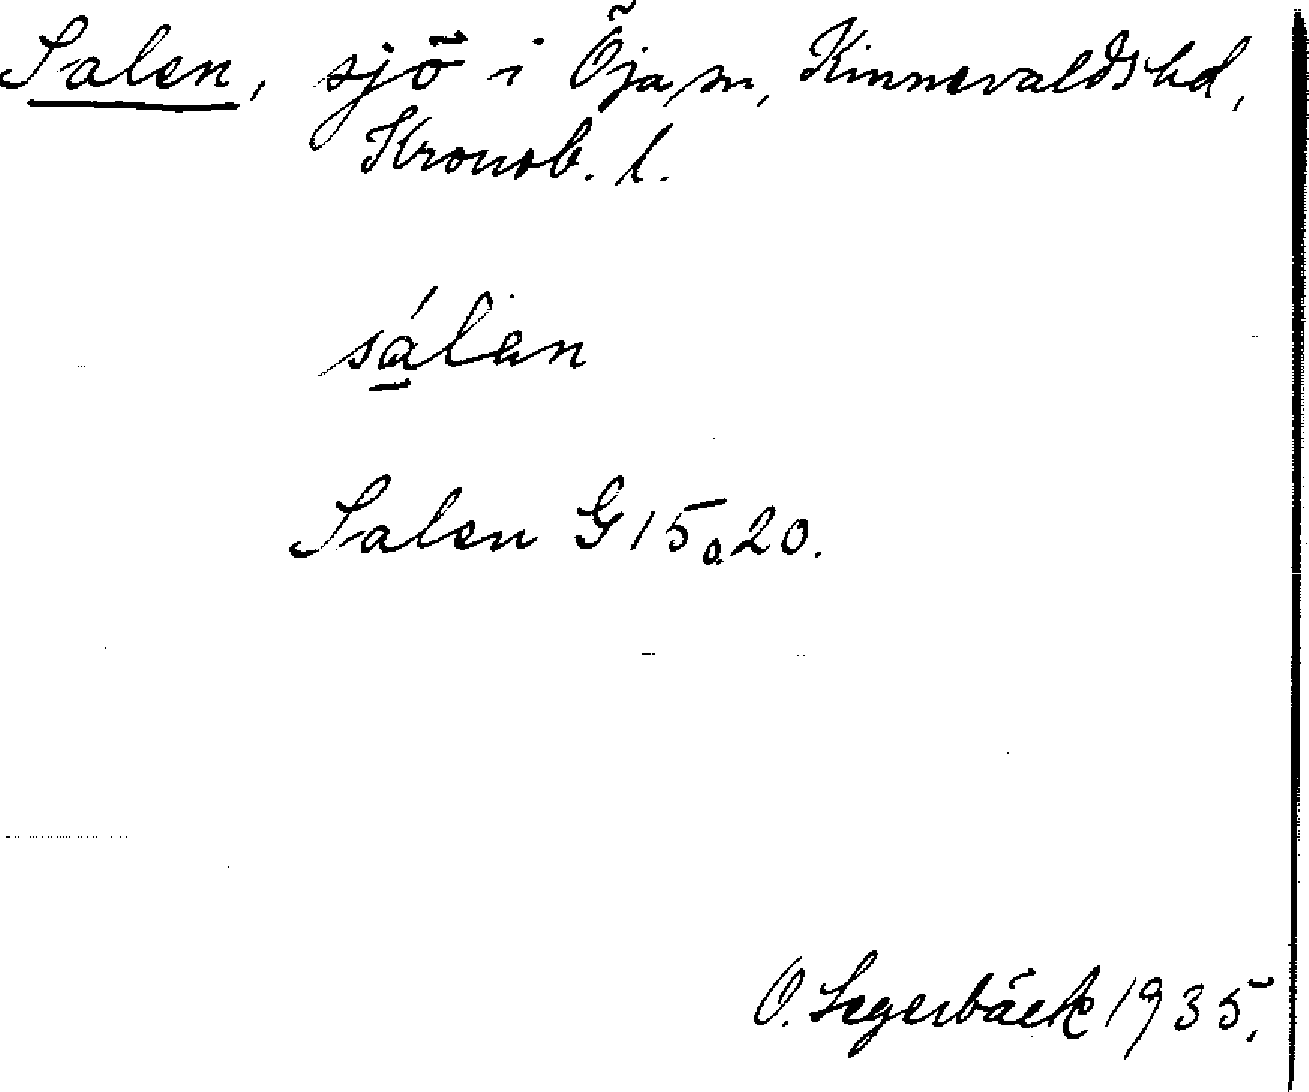 Salen, sjö i Öja sn, Kinnevalds hd,
Kronob. l.
sálən
Salen G 15 o. 20.
O. Segerbäck 1935.